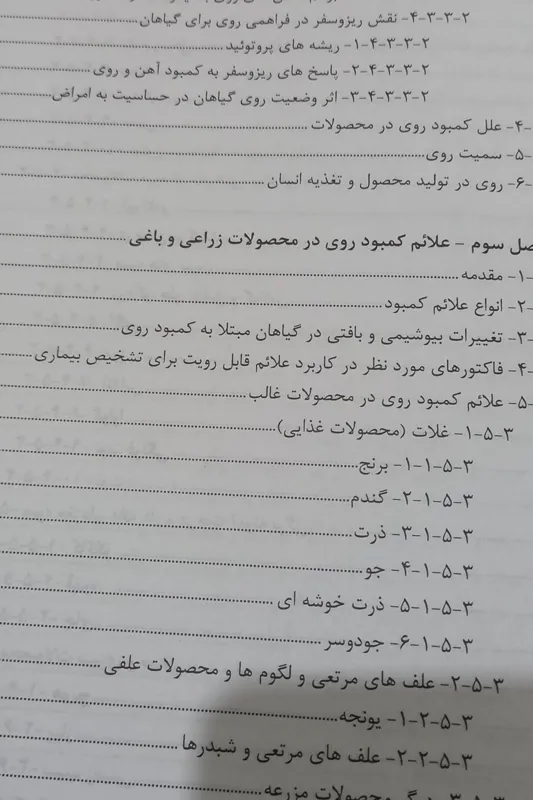 ۲-۳-۳-۴- نقش ریزوسفر در فراهمی روی برای گیاهان
۲-۳-۳-۴-۱- ریشه های پروتوئید
۲-۳-۳-۴-۲- پاسخ های ریزوسفر به کمبود آهن و روی
۲-۳-۳-۴-۳- اثر وضعیت روی گیاهان در حساسیت به امراض
-۴- علل کمبود روی در محصولات
-۵- سمیت روی
-۶- روی در تولید محصول و تغذیه انسان
صل سوم - علائم کمبود روی در محصولات زراعی و باغی
-۱- مقدمه
-۲- انواع علائم کمبود
-۳- تغییرات بیوشیمی و بافتی در گیاهان مبتلا به کمبود روی
-۴- فاکتورهای مورد نظر در کاربرد علائم قابل رویت برای تشخیص بیماری
-۵- علائم کمبود روی در محصولات غالب
۳-۵-۱- غلات (محصولات غذایی)
۳-۵-۱-۱- برنج
۳-۵-۱-۲- گندم
۳-۵-۱-۳- ذرت
۳-۵-۱-۴- جو
۳-۵-۱-۵- ذرت خوشه ای
۳-۵-۱-۶- جودوسر
۳-۵-۲- علف های مرتعی و لگوم ها و محصولات علفی
۳-۵-۲-۱- یونجه
۳-۵-۲-۲- علف های مرتعی و شبدرها
محصولات مزرعه